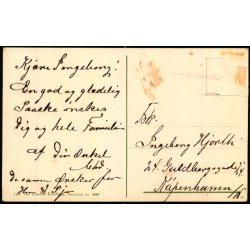 Kjære Ingeborg!
En god og glædelig
Paaske ønskes
dig og hele Familien
af din Onkel
de samme Ønsker fra
Frk.
Ingeborg Hjorth
24 Guldbergsgade 24
Kjøbenhavn